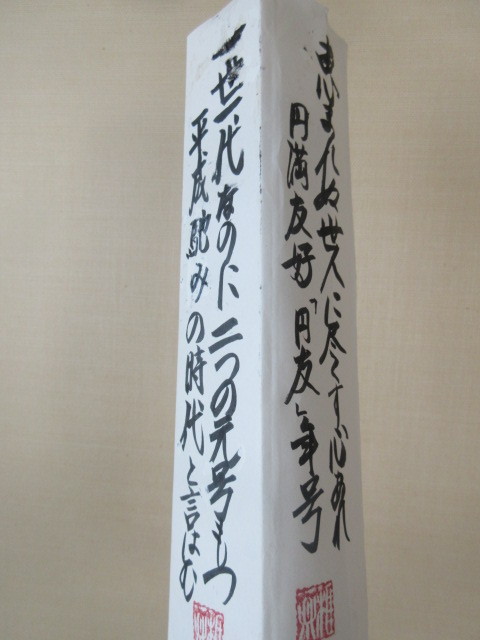 恵まれぬ世人に尽くす心あれ
円満友好「円友」年号
一世一代なのに二つの元号もつ
平成馳みの時代と言はむ